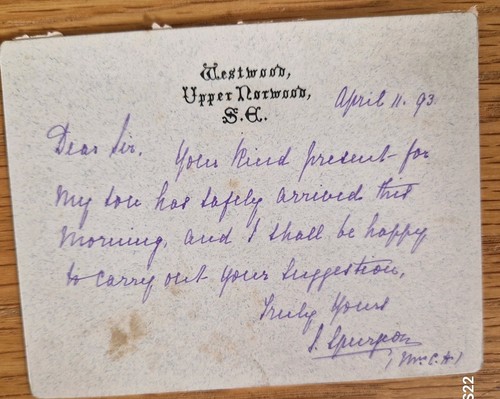 Westwood,
Upper Norwood,
S.E.
April 11. 93.
Dear Sir. Your kind present for
my son has safely arrived this
morning, and I shall be happy
to carry out your suggestion,
Truly Yours
S. Spurgeon
(Mrs C. H)
S22